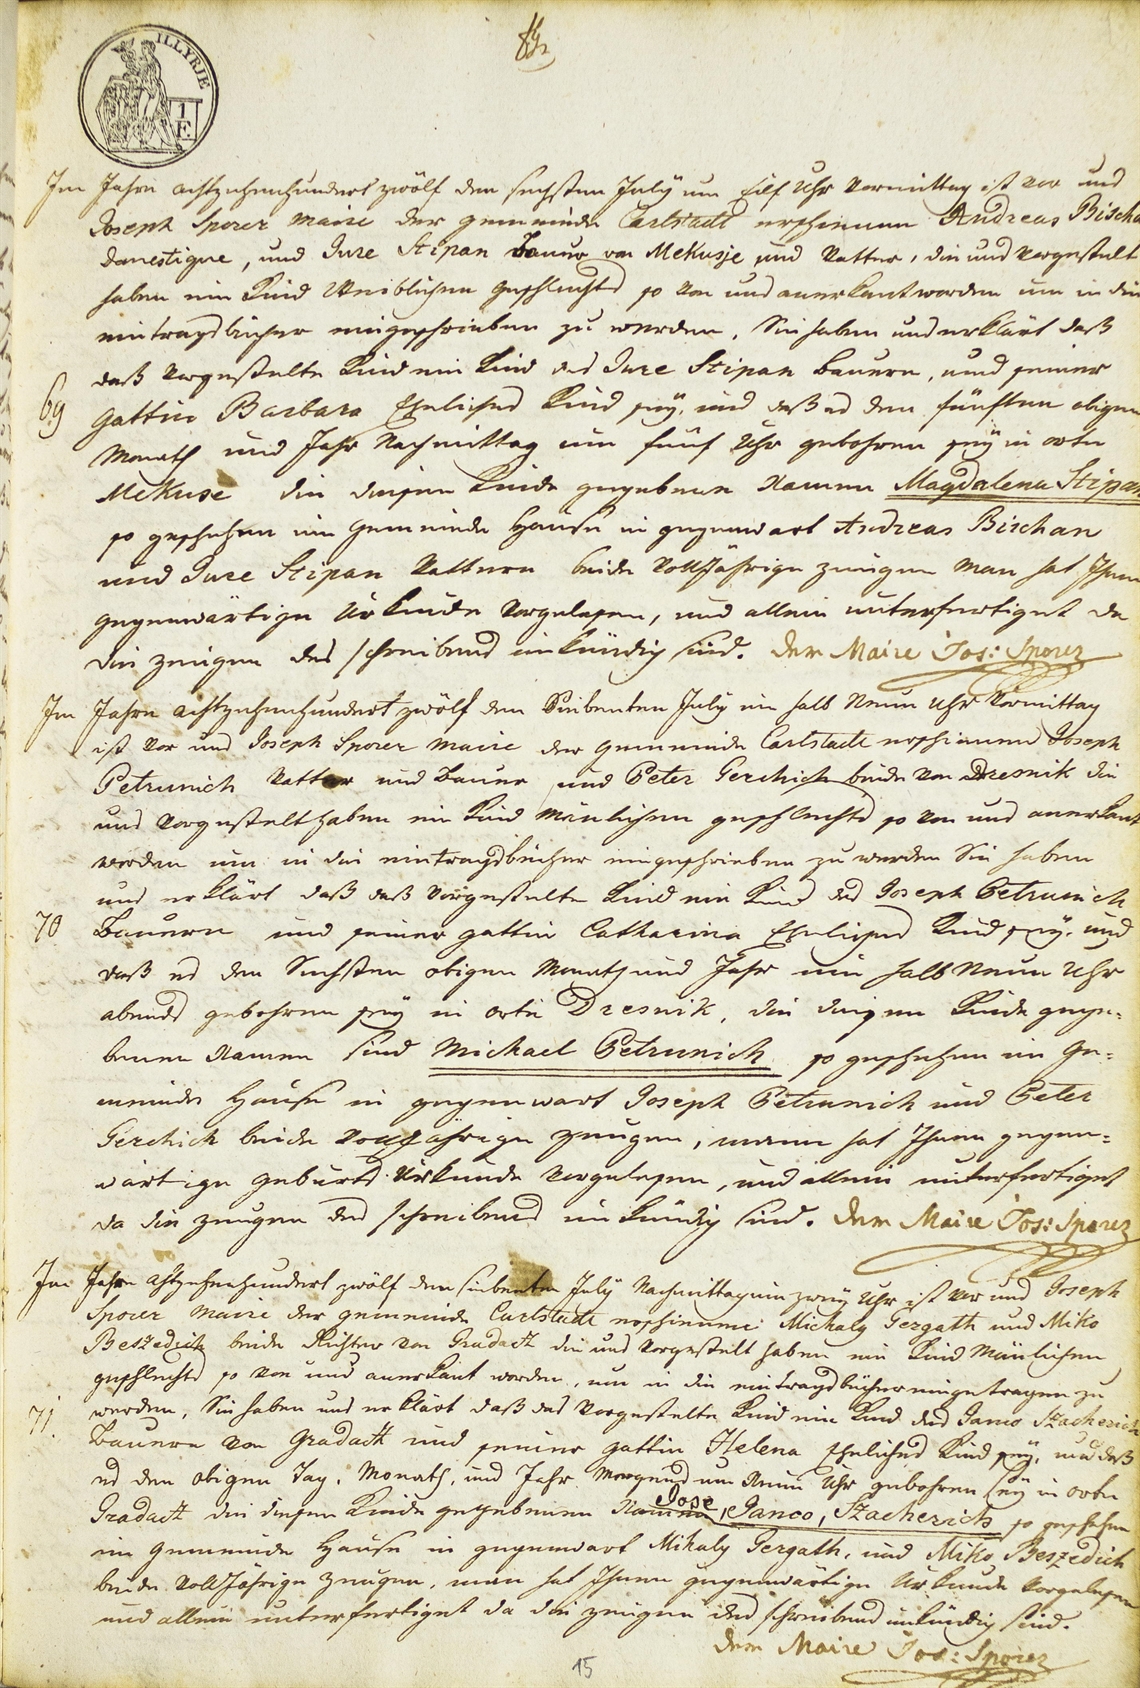 ILLYRJE
1 F.
Im Jahre achtzehenhundert zwölf den sechsten July um Eilf Uhr Vormittag ist vor uns
Joseph Sporer Maire der gemeinde Carlstadt erschienen Andreas Bischa
Domestique, und Jure Stipan Bauer von Mekusje und Vatter, die uns Vorgestelt
haben ein Kind Weiblichen geschlechts so Von uns anerkant worden um in die
eintragsbücher eingeschrieben zu werden, Sie haben uns erklärt daß
daß Vorgestelte Kind ein Kind des Jure Stipan Bauern, und seiner
69 Gattin Barbara Eheliches Kind seÿ, und daß es den fünften obigen
Monath und Jahr Nachmittag um fünf Uhr gebohren seÿ in orte
Mekuse die diesem Kinde gegebene Namen Magdalena Stipan
so geschehen im Gemeinde Hause in gegenwart Andreas Bischan
und Jure Stipan Vattern beide VollJährige zeugen Man hat Ihnen
gegenwärtige Urkunde Vorgelesen, und allein unterfertiget da
die zeugen des schreibens unkündig sind. Der Maire Jos: Sporer
Im Jahre achtzehenhundert zwölf den Siebenten July um halb Neun Uhr Vormittag
ist Vor uns Joseph Sporer Maire der gemeinde Carlstadt erschienen Joseph
Petrunich Vatter und Bauer und Peter Gerchich beide Von Dresnik die
uns Vorgestelt haben ein Kind Mänlichen geschlechts so Von uns anerkant
worden um in die eintragsbücher eingeschrieben zu werden Sie haben
uns erklärt daß daß Vorgestelte Kind ein Kind des Joseph Petrunich
70 Bauern und seiner gattin Catharina Eheliches Kind seÿ, und
daß es den Sechsten obigen Monath und Jahr um halb Neun Uhr
abends gebohren seÿ in orte Dresnik, die diesem Kinde gege=
benen Namen sind Michael Petrunich so geschehen im Ge=
meinde Hause in gegenwart Joseph Petrunich und Peter
Gerchich beide Volljährige zeugen, mann hat Ihnen gegen=
wärtige geburts Urkunde Vorgelesen, und allein unterfertiget
da die zeugen des schreibens unkündig sind. Der Maire Jos: Sporer
Im Jahre achtzehenhundert zwölf den siebenten July Nachmittag um zweÿ Uhr ist Vor uns Joseph
Sporer Maire der gemeinde Carlstadt erschienen Michaly Gergath und Miko
Beszedich beide Richter Von Gradacz die uns Vorgestelt haben ein Kind Mänlichen
geschlechts so Von uns anerkant worden, um in die eintragsbücher eingetragen zu
71. werden, Sie haben uns erklärt daß das Vorgestelte Kind ein Kind des Janco Szacherich
Bauern Von Gradacz und seiner gattin Helena Eheliches Kind seÿ, und daß
es den obigen Tag, Monath, und Jahr Morgens um Neun Uhr gebohren seÿ in orte
Gradacz die diesem Kinde gegebenen Namen Jose, Janco, Szacherich so geschehen
im Gemeinde Hause in gegenwart Mihaly Gergath, und Miko Beszedich
beide VollJährige zeugen, man hat Ihnen gegenwärtige Urkunde Vorgelesen
und allein unterfertiget da die zeugen des schreibens unkündig sind.
Der Maire Jos: Sporer
15